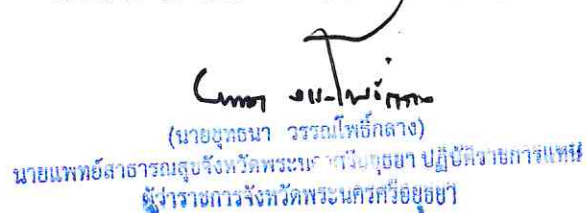 (นายยุทธนา วรรณโพธิ์กลาง)
นายแพทย์สาธารณสุขจังหวัดพระนครศรีอยุธยา ปฏิบัติราชการแทน
ผู้ว่าราชการจังหวัดพระนครศรีอยุธยา